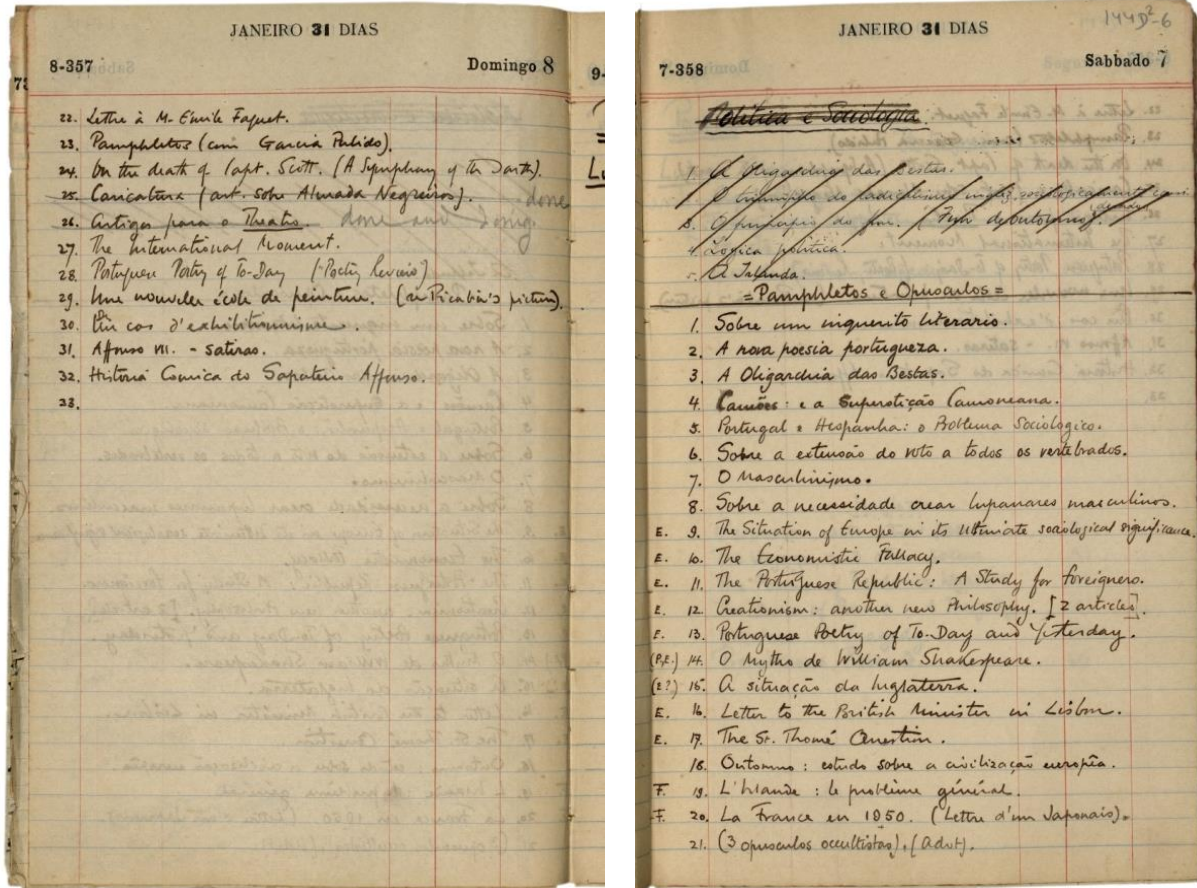 JANEIRO 31 DIAS
8-357 Domingo 8
22. Lettre à M. Émile Faguet.
23. Pamphletos (com Garcia Pulido).
24. On the death of Capt. Scott. (A Symphony of the Death).
25. Caricatura (art. sobre Almada Negreiros). done
26. Cantigas para o Theatro. done and
27. The International Moment.
28. Portuguese Poetry of To-Day (Poetry Review)
29. Une nouvelle école de peinture. (re Picabia's picture).
30. Un cas d'exhibitionnisme.
31. Affonso VII. - satiras.
32. Historia Comica do Sapateiro Affonso.
23.
144D²-6
JANEIRO 31 DIAS
7-358 Sabbado 7
Politica e Sociologia.
1. A Oligarchia das Bestas.
O do radicalismo inglez
3. O principio do fim. (Fim de outomno)
4. Logica politica.
5. A Irlanda.
= Pamphletos e Opusculos =
1. Sobre um inquerito literario.
2. A nova poesia portugueza.
3. A Oligarchia das Bestas.
4. Camões: e a Superstição Camoneana.
5. Portugal e Hespanha: o Problema Sociologico.
6. Sobre a extensão do voto a todos os vertebrados.
7. O masculinismo.
8. Sobre a necessidade crear lupanares masculinos.
E. 9. The Situation of Europe in its ultimate sociological significance.
E. 10. The Economistic Fallacy.
E. 11. The Portuguese Republic: A Study for foreigners.
E. 12. Creationism: another new Philosophy. [2 articles].
E. 13. Portuguese Poetry of To-Day and Yesterday.
(P,E.) 14. O Mytho de William Shakespeare.
(E?) 15. A situação da Inglaterra.
E. 16. Letter to the British Minister in Lisbon.
E. 17. The St. Thomé Question.
18. Outomno: estudo sobre a civilização européa.
F. 19. L'Irlande: le problème général.
F. 20. La France en 1950. (Lettre d'un Japonais).
21. (3 opusculos occultistas). (Adot).